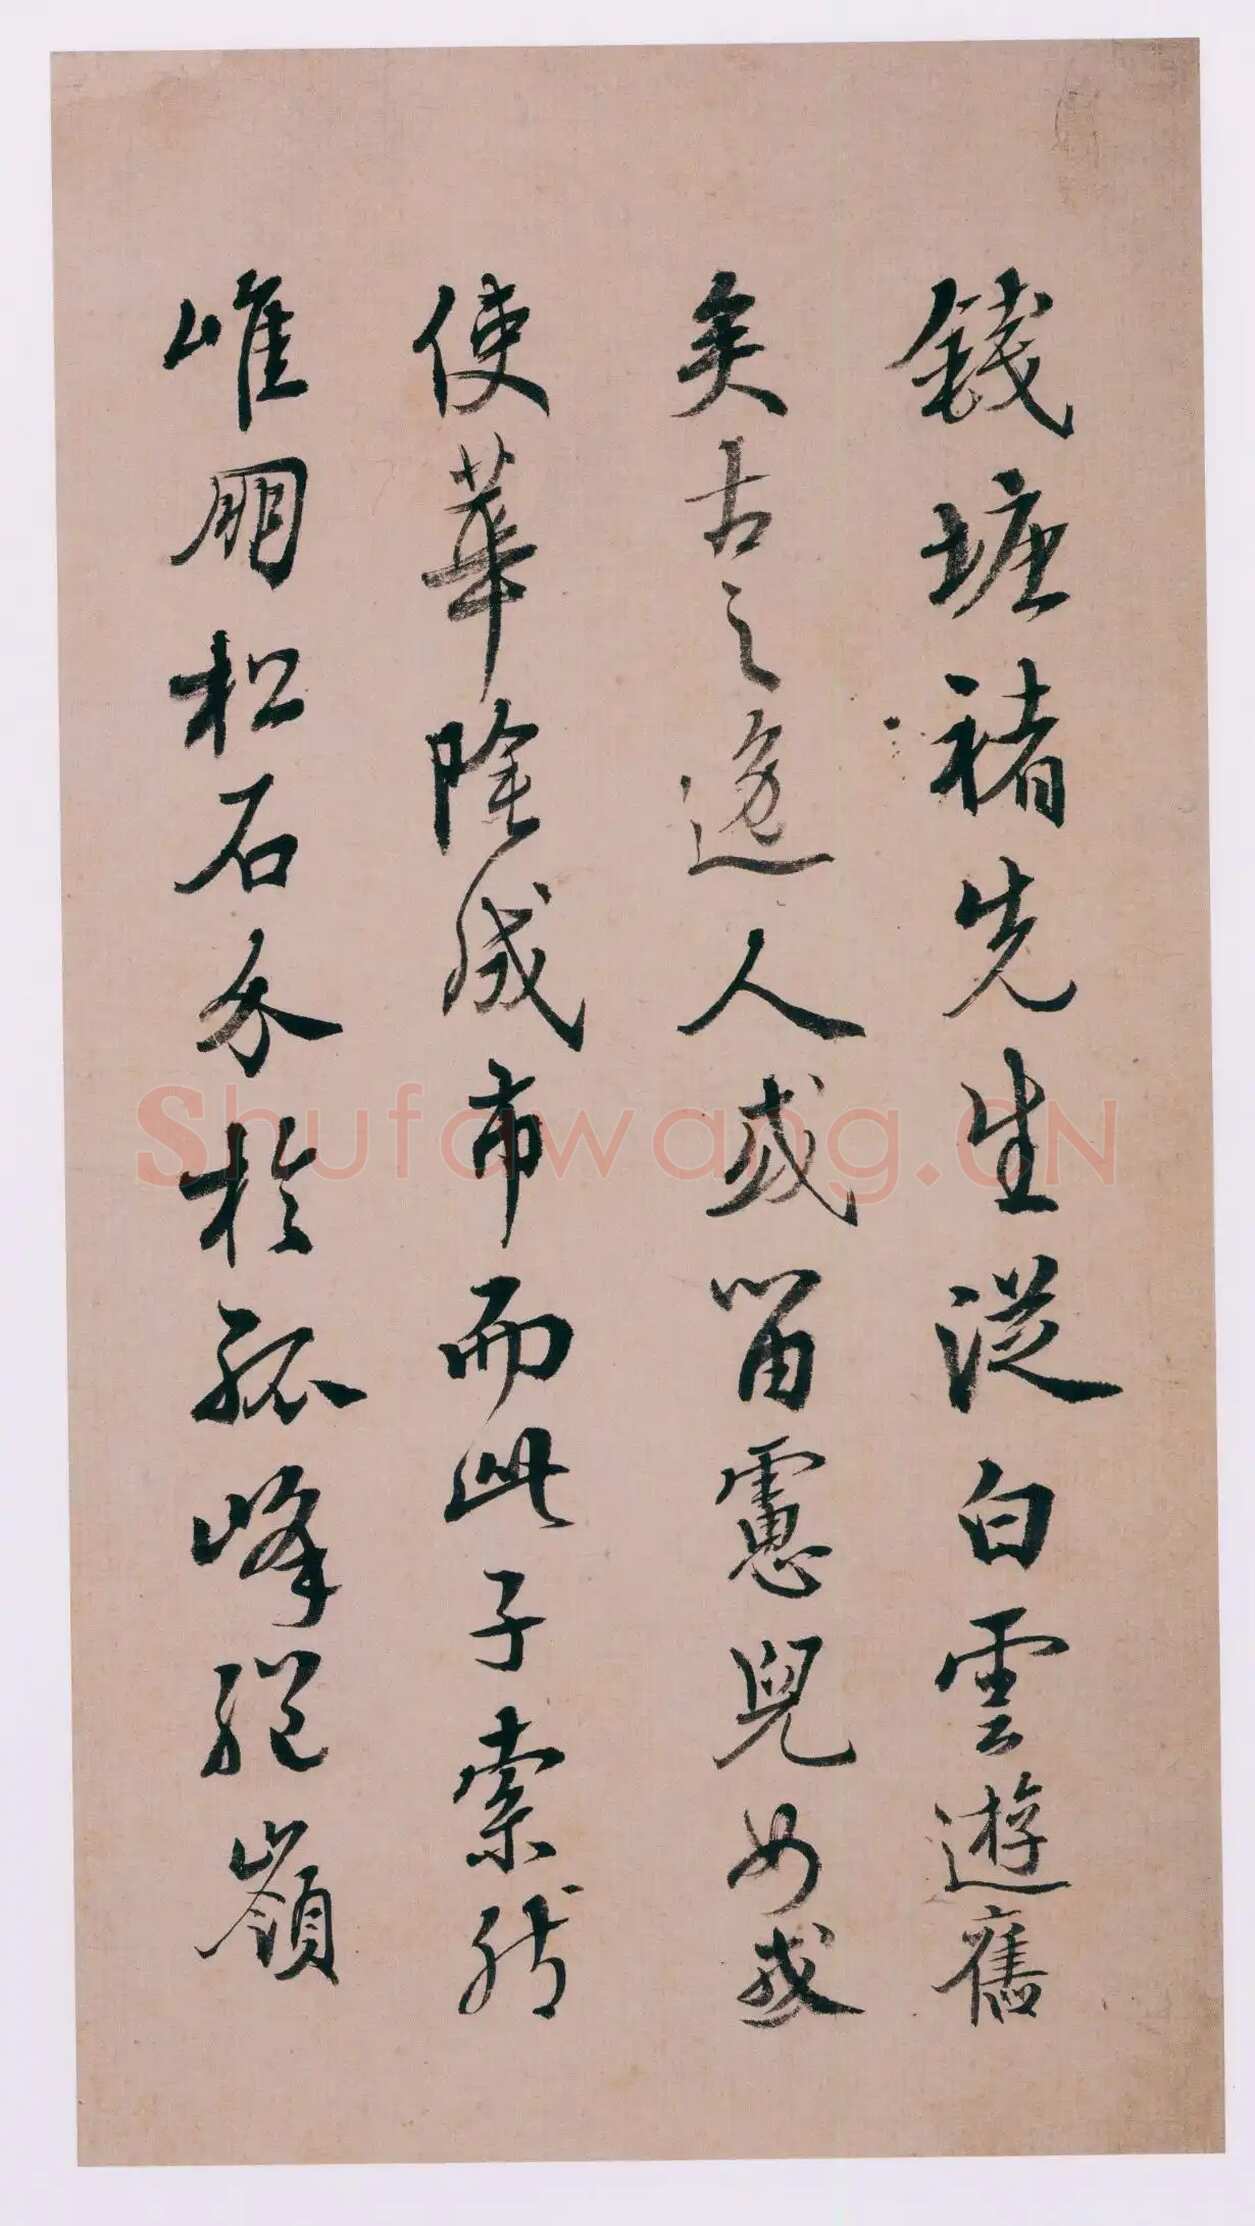 錢塘褚先生從白雲遊舊
矣古之逸人或留慮兒女或
使華陰成市而此子索然
唯朋松石介於孤峰絕嶺
Shufawang.CN